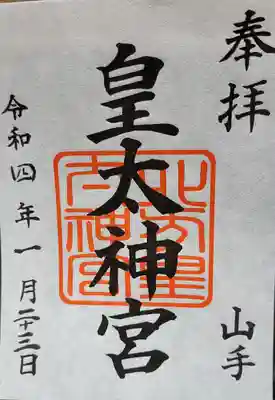 奉拝
山手
皇太神宮
令和四年一月二十三日